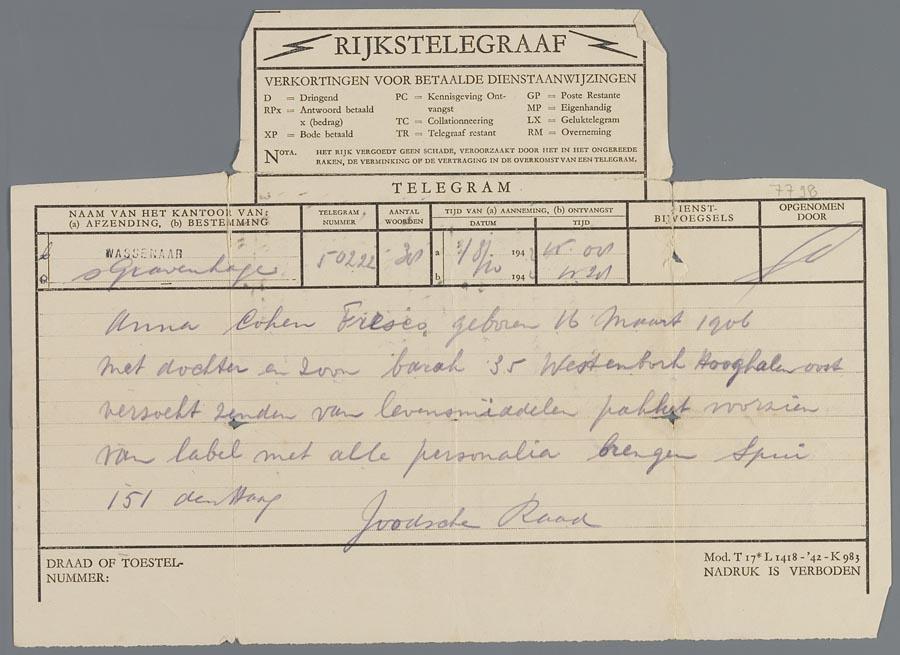 RIJKSTELEGRAAF
VERKORTINGEN VOOR BETAALDE DIENSTAANWIJZINGEN
D = Dringend
RPx = Antwoord betaald
x (bedrag)
XP = Bode betaald
PC = Kennisgeving Ont-
vangst
TC = Collationneering
TR = Telegraaf restant
GP = Poste Restante
MP = Eigenhandig
LX = Geluktelegram
RM = Overneming
NOTA. HET RIJK VERGOEDT GEEN SCHADE, VEROORZAAKT DOOR HET IN HET ONGEREEDE
RAKEN, DE VERMINKING OF DE VERTRAGING IN DE OVERKOMST VAN EEN TELEGRAM.
TELEGRAM
7798
NAAM VAN HET KANTOOR VAN:
(a) AFZENDING, (b) BESTEMMING
TELEGRAM
NUMMER
AANTAL
WOORDEN
TIJD VAN (a) AANNEMING, (b) ONTVANGST
DATUM
TIJD
DIENST-
BIJVOEGSELS
OPGENOMEN
DOOR
b WASSENAAR
a sGravenhage
50222
a 194
b 194
Anna Cohen Fresco geboren 16 Maart 1906
met dochter en zoon barak 35 Westenbork Hooghalen oost
verzoekt zenden van levensmiddelen pakket voorzien
van label met alle personalia brengen Spui
151 den Haag
Joodsche Raad
DRAAD OF TOESTEL-
NUMMER:
Mod. T 17* L 1418 - '42 - K 983
NADRUK IS VERBODEN